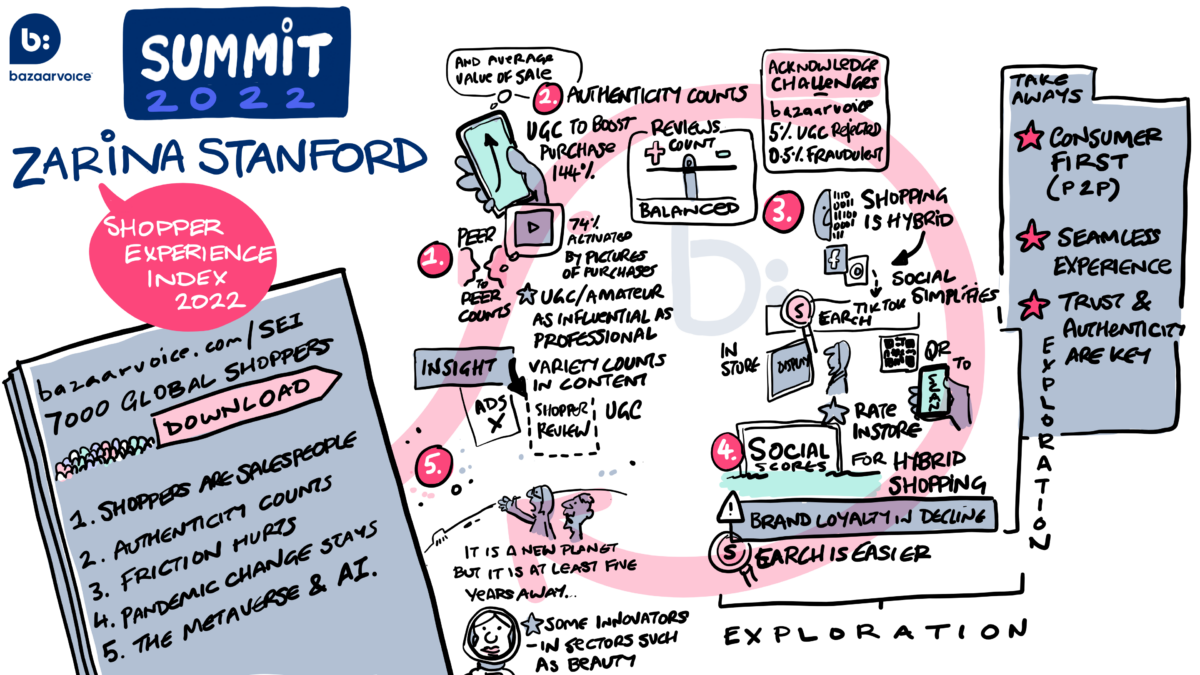 b:
bazaarvoice
SUMMIT
2022
ZARINA STANFORD
SHOPPER
EXPERIENCE
INDEX
2022
bazaarvoice.com/SEI
7000 GLOBAL SHOPPERS
DOWNLOAD
1. SHOPPERS ARE SALESPEOPLE
2. AUTHENTICITY COUNTS
3. FRICTION HURTS
4. PANDEMIC CHANGE STAYS
5. THE METAVERSE & AI.
AND AVERAGE
VALUE OF SALE
2. AUTHENTICITY COUNTS
UGC TO BOOST
PURCHASE
144%
REVIEWS
COUNT
+ -
BALANCED
1.
PEER
TO
PEER
COUNTS
74%
ACTIVATED
BY PICTURES
OF PURCHASES
UGC/AMATEUR
AS INFLUENTIAL AS
PROFESSIONAL
INSIGHT
VARIETY COUNTS
IN CONTENT
ADS
X
SHOPPER
REVIEW
UGC
5.
IT IS A NEW PLANET
BUT IT IS AT LEAST FIVE
YEARS AWAY...
SOME INNOVATORS
- IN SECTORS SUCH
AS BEAUTY
ACKNOWLEDGE
CHALLENGES
bazaarvoice
5% UGC REJECTED
0.5% FRAUDULENT
b:
3.
SHOPPING
IS HYBRID
f
SOCIAL
SIMPLIFIES
TIKTOK
SEARCH
IN
STORE
DISPLAY
QR
TO
SCAN
RATE
INSTORE
4.
SOCIAL
SCORES
FOR HYBRID
SHOPPING
! BRAND LOYALTY IN DECLINE
SEARCH IS EASIER
EXPLORATION
EXPLORATION
TAKE
AWAYS
CONSUMER
FIRST
(P2P)
SEAMLESS
EXPERIENCE
TRUST &
AUTHENTICITY
ARE KEY